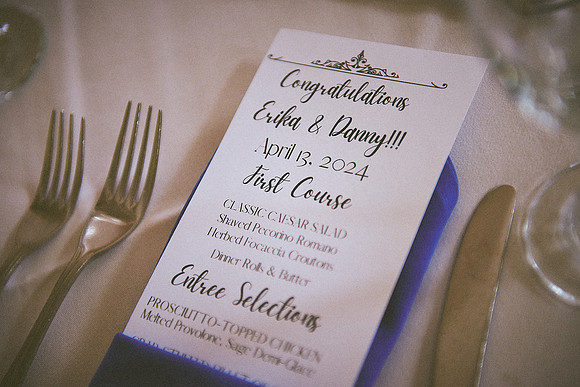 Congratulations
Erika & Danny!!!
April 13, 2024
First Course
CLASSIC CAESAR SALAD
Shaved Pecorino Romano
Herbed Focaccia Croutons
Dinner Rolls & Butter
Entree Selections
PROSCIUTTO-TOPPED CHICKEN
Melted Provolone, Sage Demi-Glace